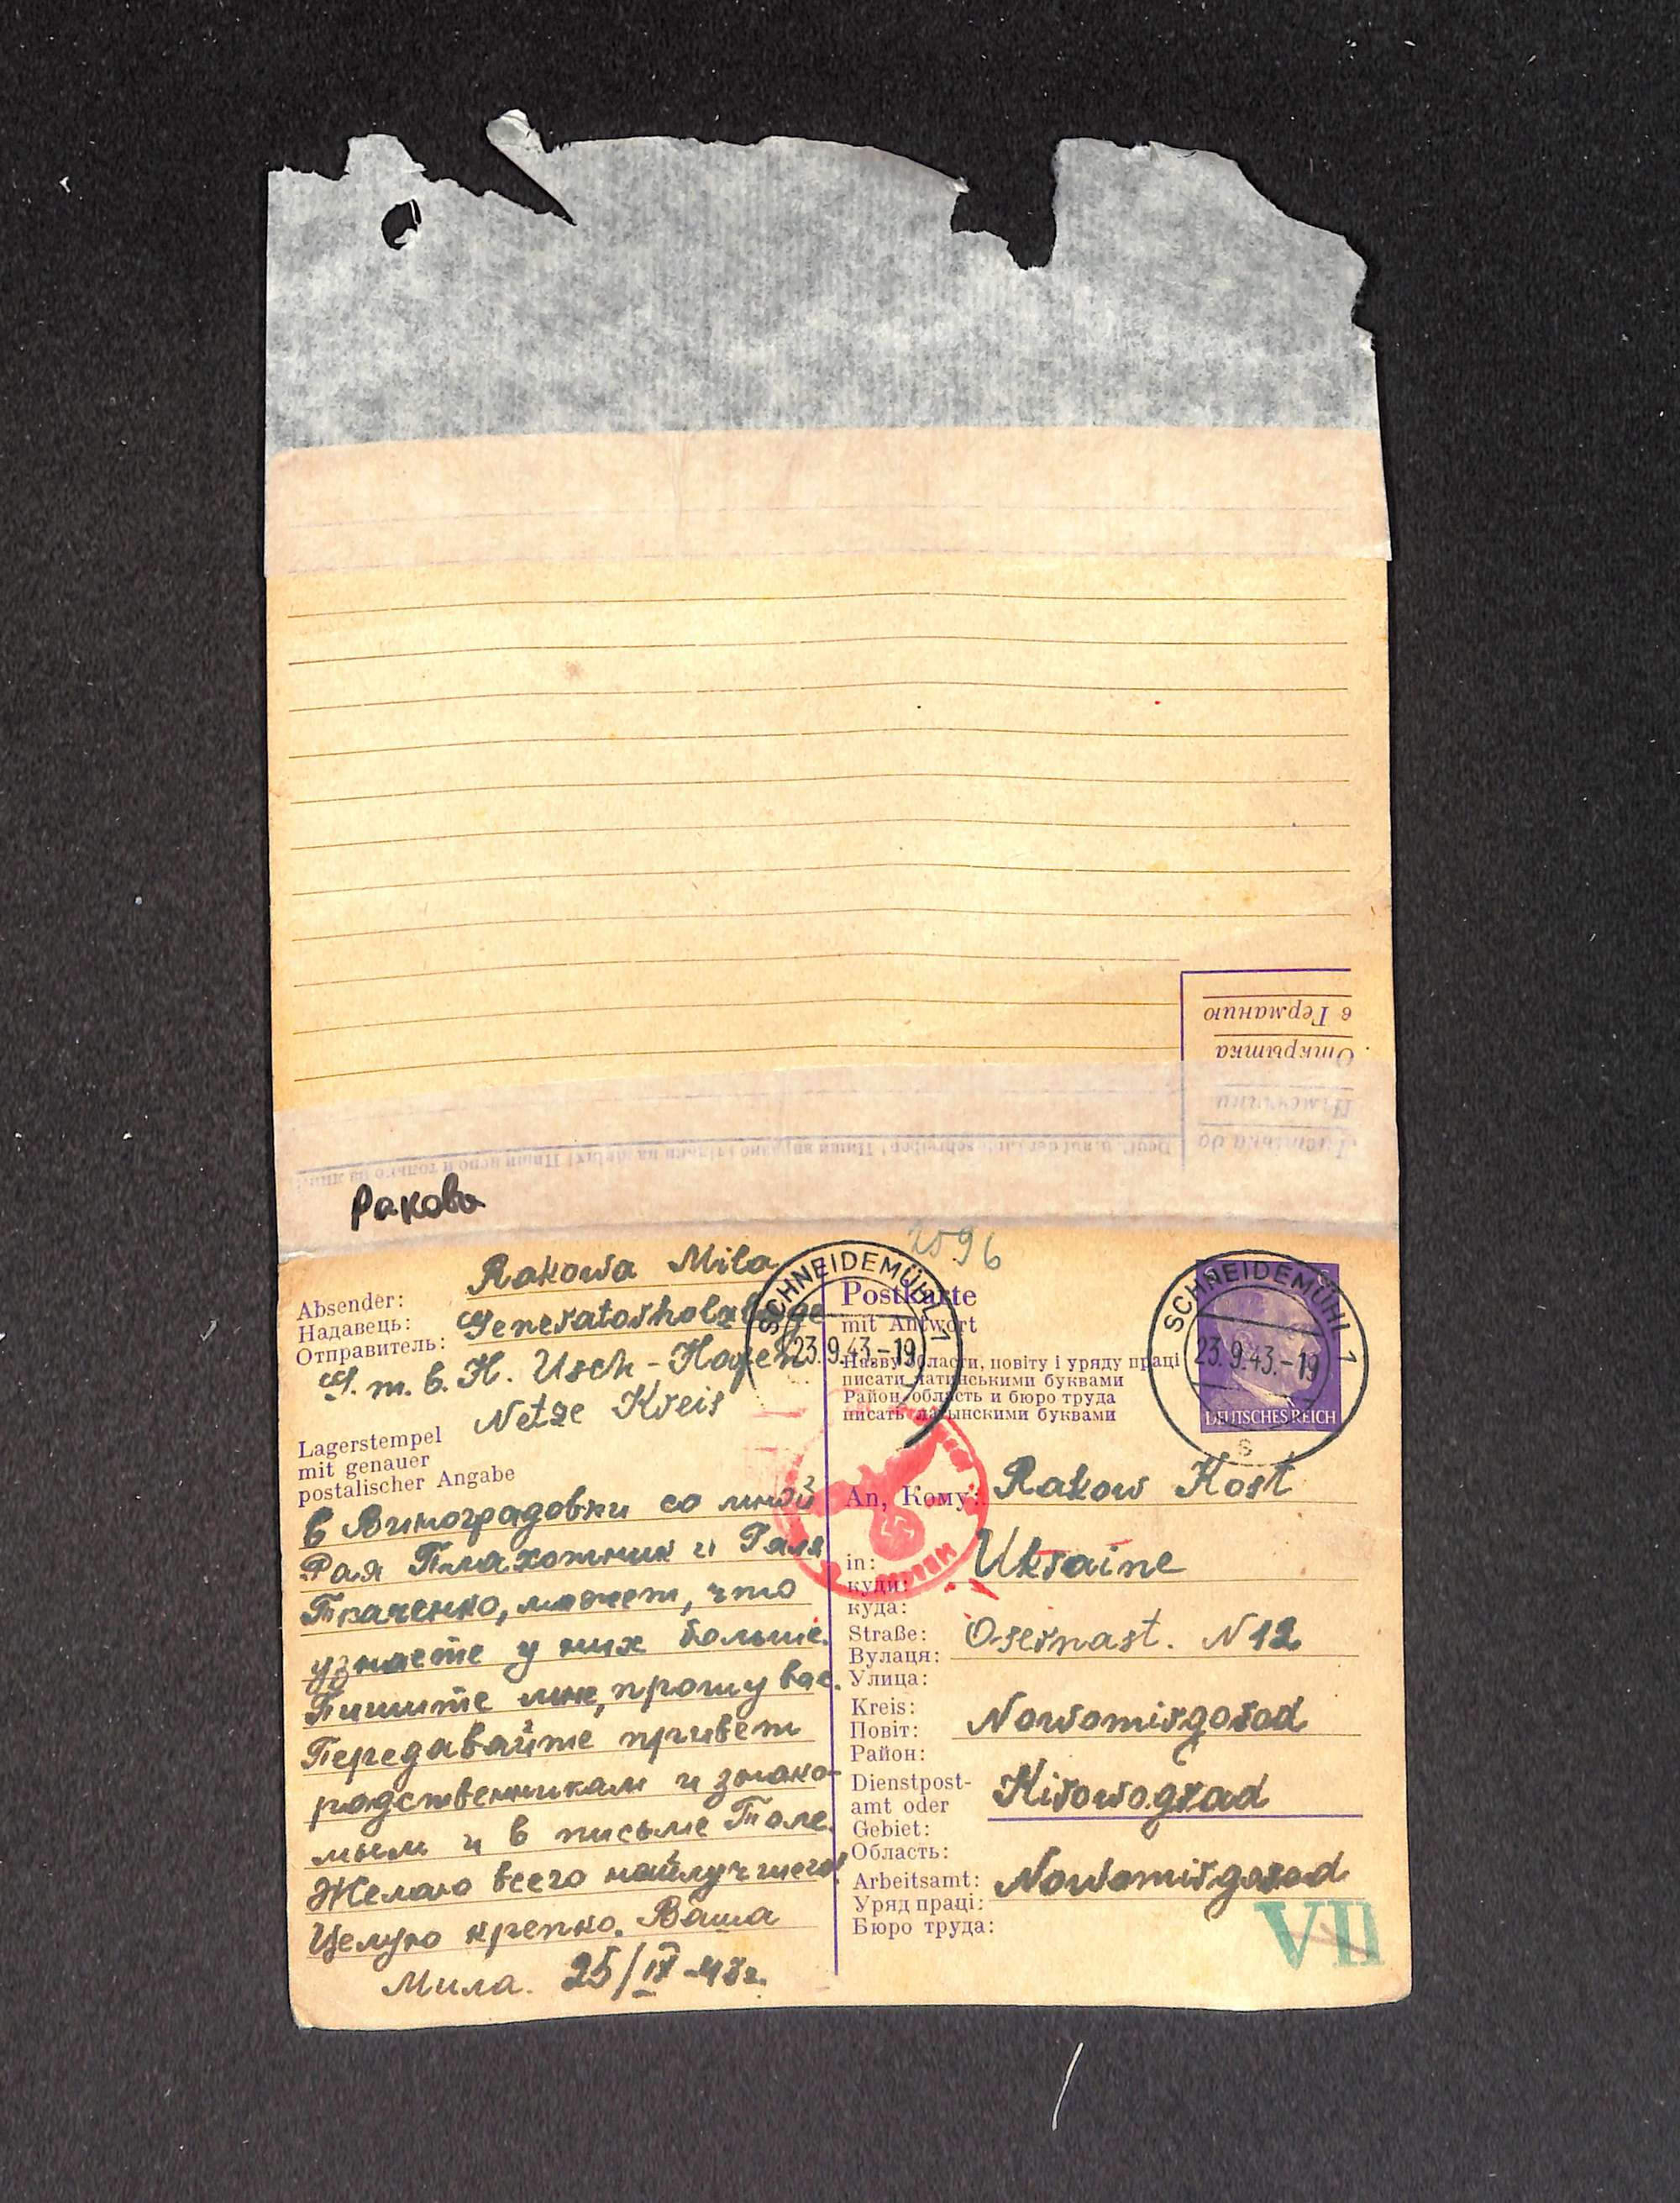 в Германию
Открытка
Німеччини
Листівка до
Deutlich auf der Linie schreiben! Пиши виразно і тільки на лініях! Пиши ясно и только на
Ракова
2596
Rakowa Mila
Absender:
Надавець:
Отправитель:
Generatorholzlage
G. m. b. H. Usch - Hafen
Netze Kreis
Lagerstempel
mit genauer
postalischer Angabe
в Виноградовки со мной
Рая Плахотник и Галя
Ткаченко, может, что
узнаете у них больше.
Пишите мне, прошу вас.
Передавайте привет
родственникам и знако-
мым и в письме Толе.
Желаю всего найлучшего!
Целую крепко. Ваша
Мила. 25/IX-43г.
SCHNEIDEMÜHL 1
23.9.43.-19
Postkarte
mit Antwort
Назву области, повіту і уряду праці
писати латинськими буквами
Район, область и бюро труда
писать латынскими буквами
SCHNEIDEMÜHL 1
23.9.43.-19
s
DEUTSCHES REICH
An, Кому: Rakow Kost
in: Ukraine
куди:
куда:
Straße: Osernast. N 12
Вулаця:
Улица:
Kreis: Nowomirgorod
Повіт:
Район:
Dienstpost-
amt oder Kirowograd
Gebiet:
Область:
Arbeitsamt: Nowomirgorod
Уряд праці:
Бюро труда:
VII